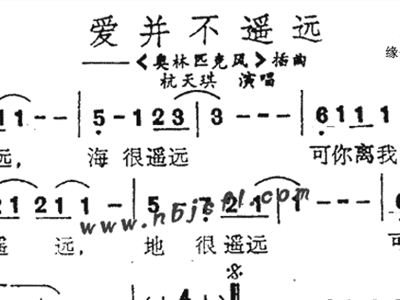 爱并不遥远
——《奥林匹克风》插曲
杭天琪 演唱
缘
11 | - - | 5 - 1 2 3 | 3 - - - | 6 1 1 1
远, 海 很遥远 可你离我
21 21 1 - - | 5 - 7 2 1 | 1 - - - | 6
遥 远, 地 很遥远 可
www.hbjcnl.com